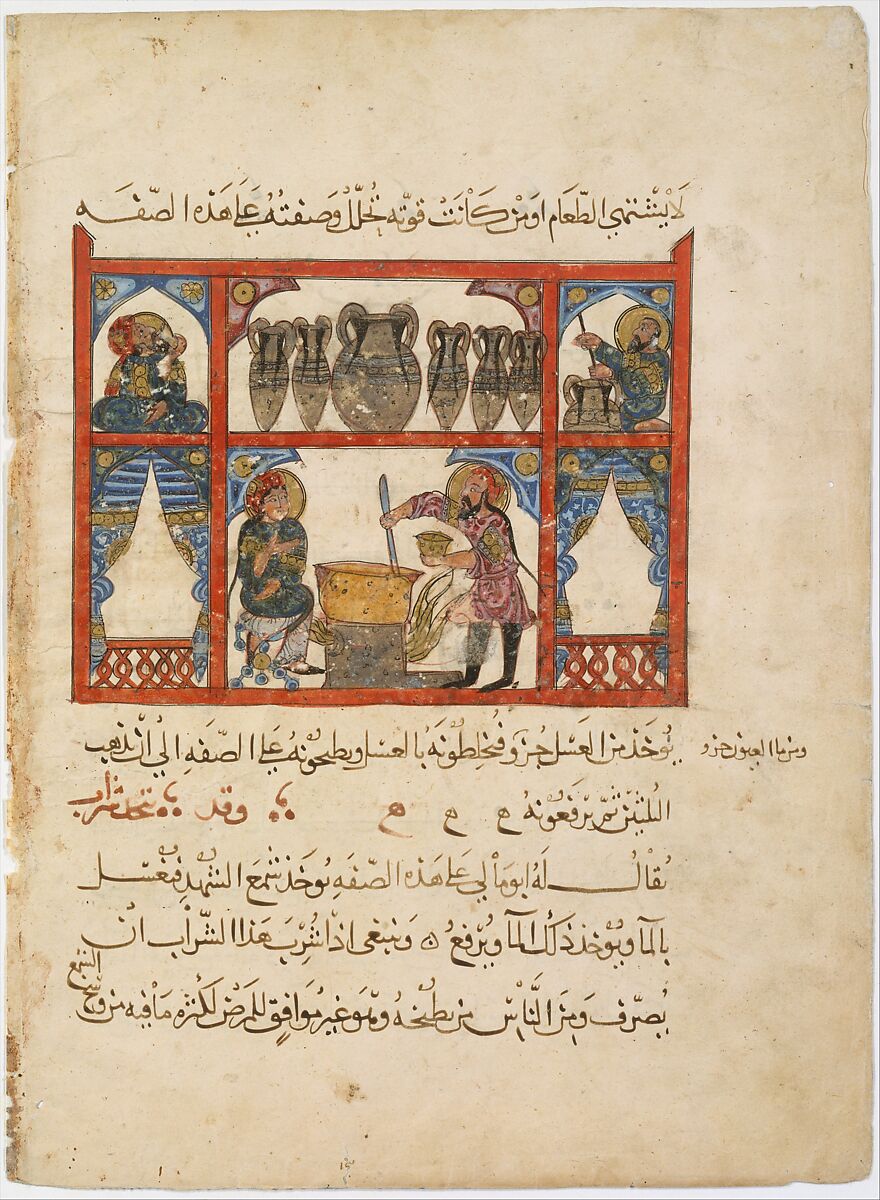 لا يشتهي الطعام او من كانت قوته تحلل وصفته على هذه الصفه
يوخذ من العسل جزو فيخلطونه بالعسل ويطبخونه على الصفه الى ان يذهب
ومن ما العيون جزو
الثلثين ثم يرفعونه ح ح ح وقد يتخذ شراب
يقال له ابومالي على هذه الصفه يوخذ شمع الشهد فيغسل
بالما ويوخذ ذلك الما ويرفع ٥ وينبغي اذا شرب هذا الشراب ان
يصرف ومن الناس من يطبخه وهو غير موافق للمرض لكثره ما فيه من وسخ
الشمع